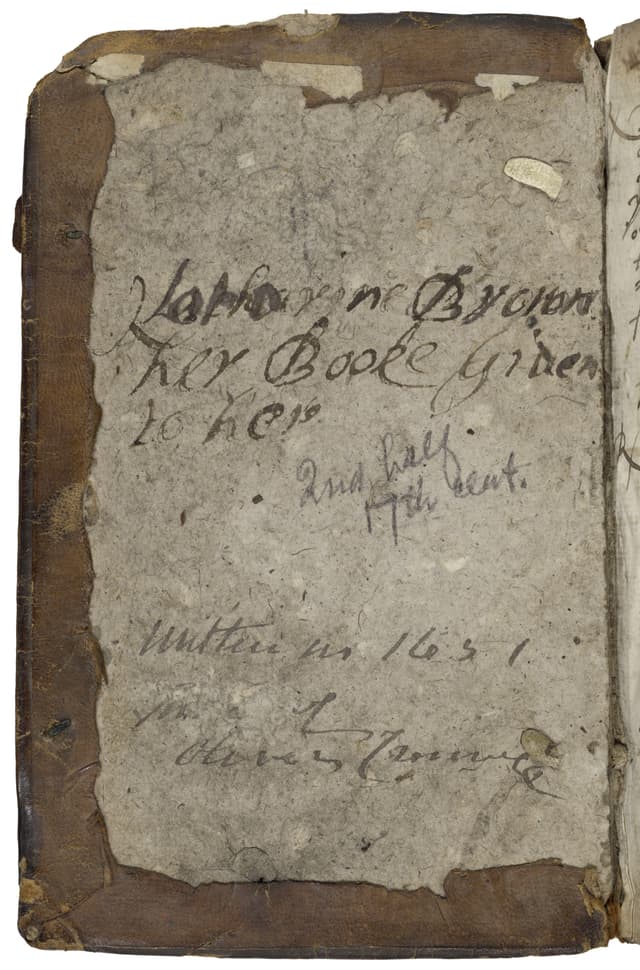 Katharine Brown
her Booke Giuen
to her
2nd half
17th cent.
Written in 1651
of
Oliver Cromwell